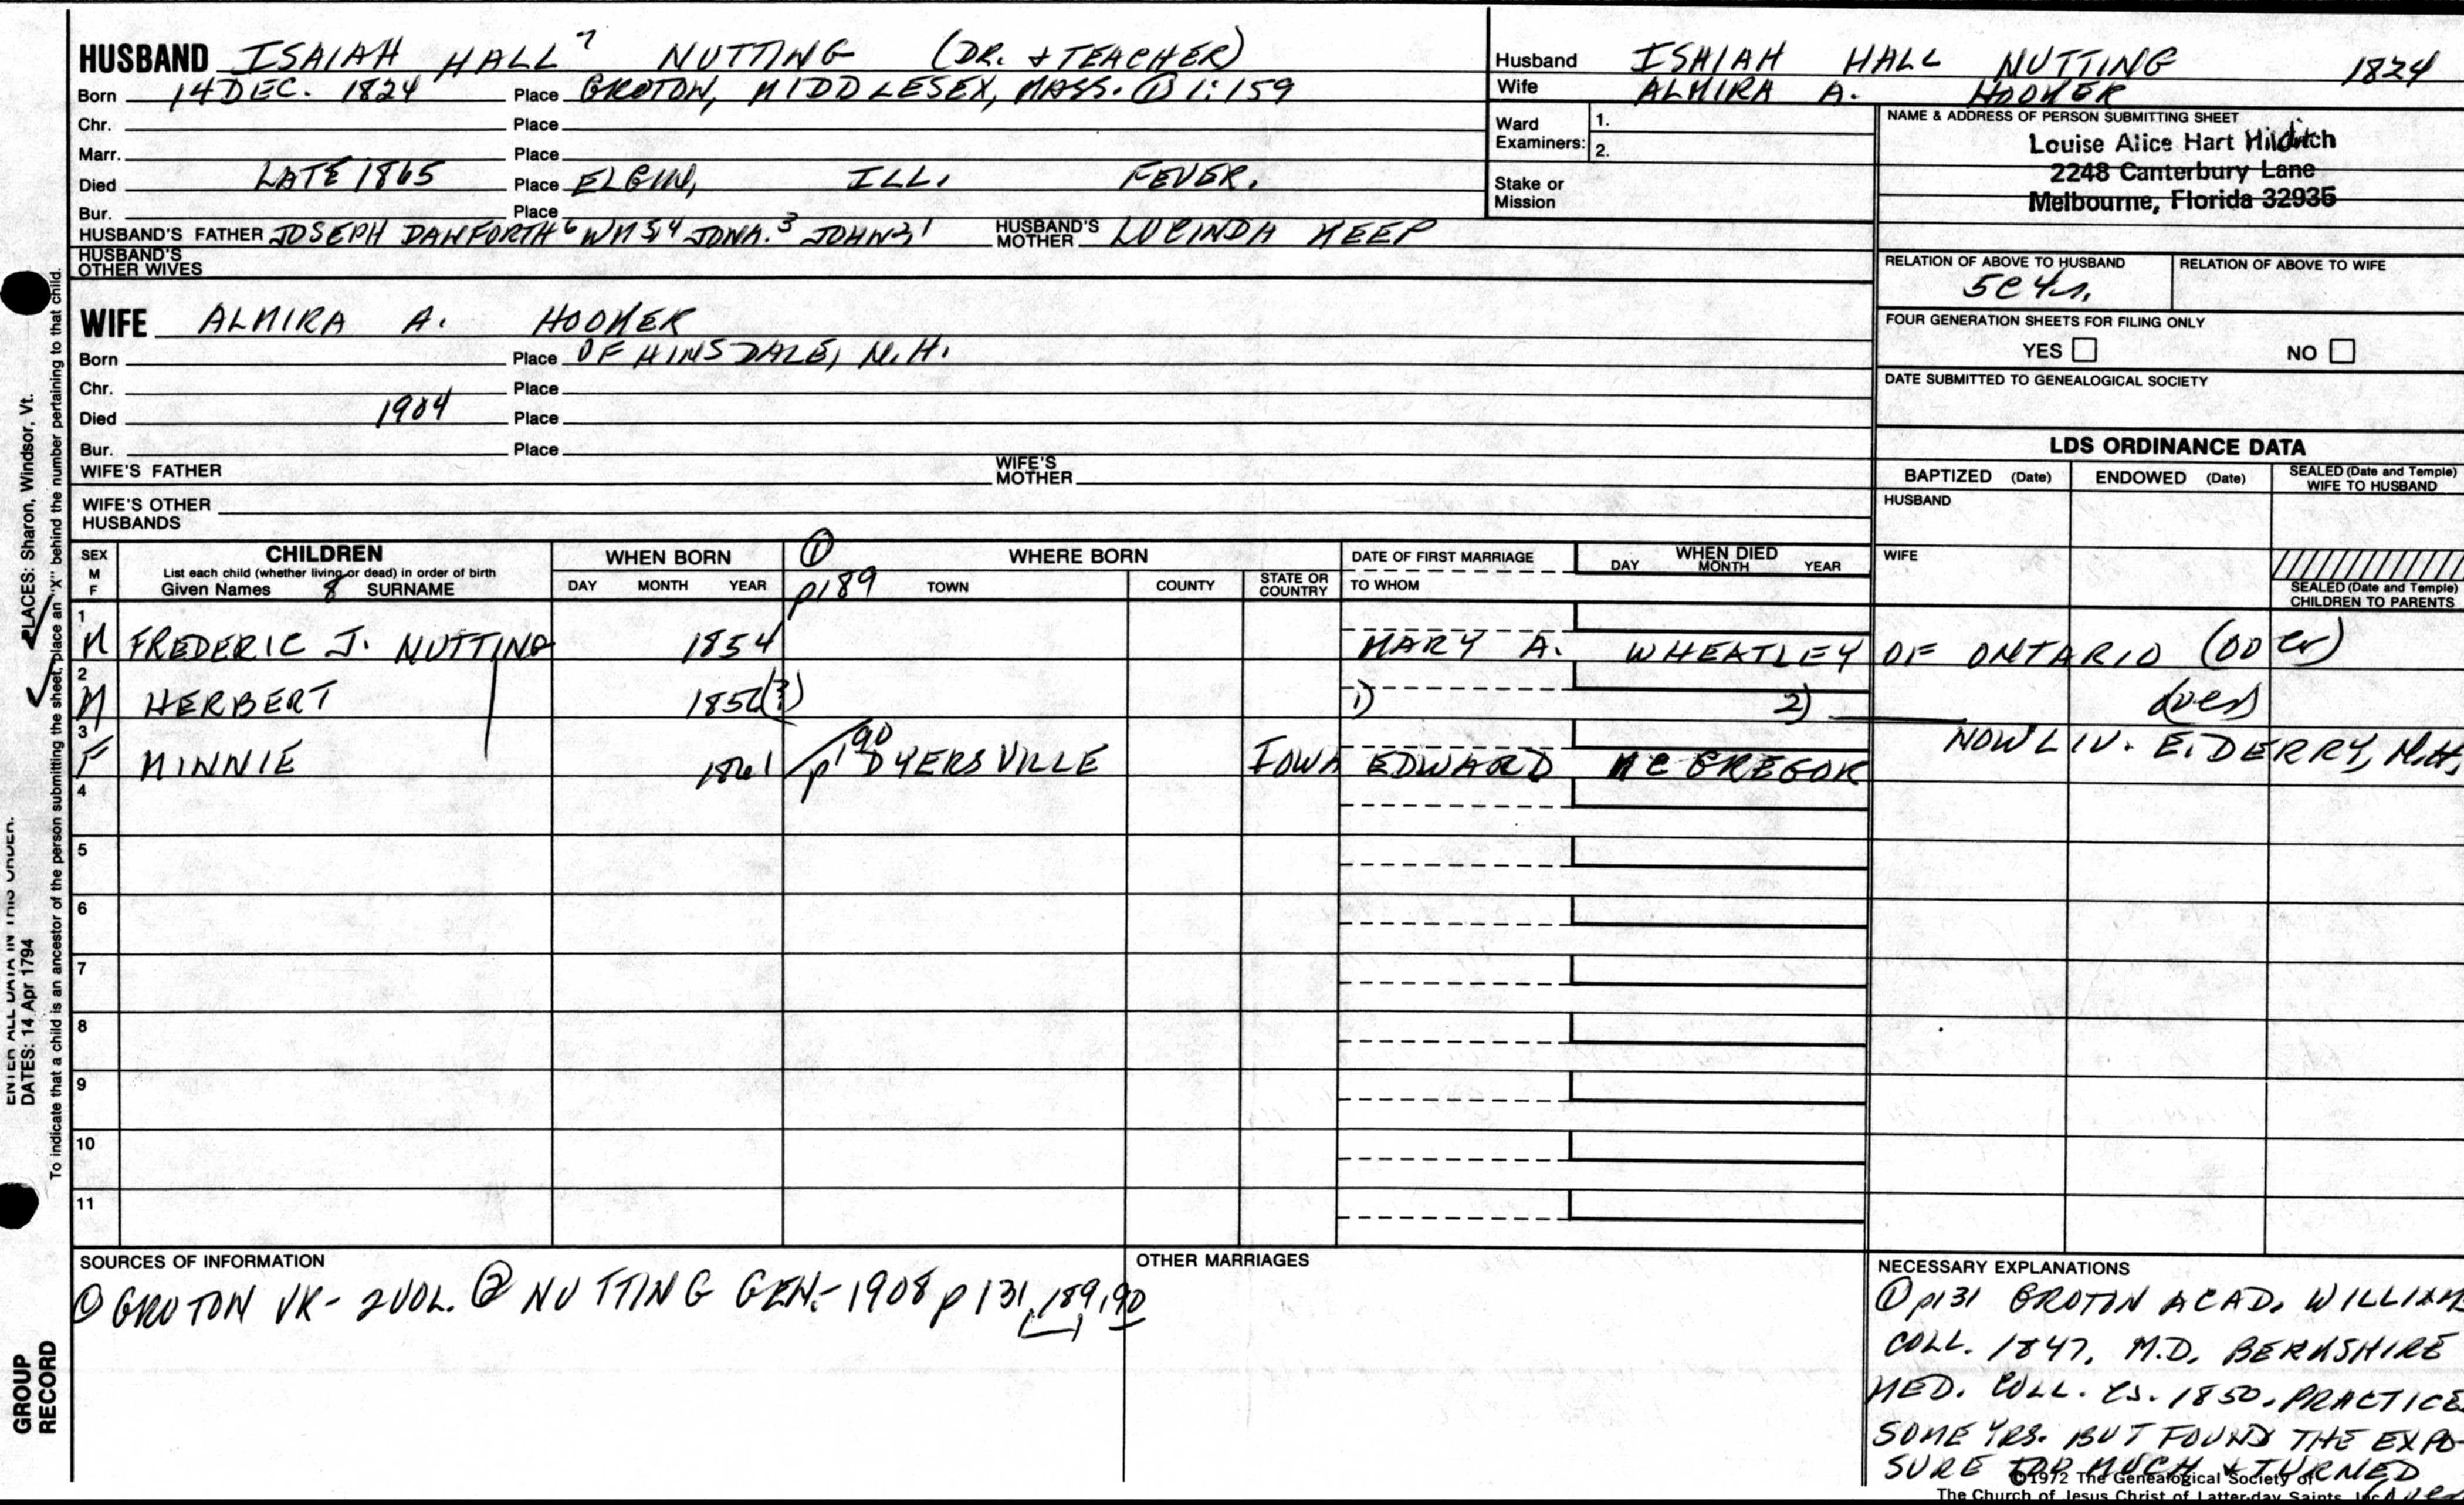 HUSBAND ISAIAH HALL 7 NUTTING (DR. + TEACHER)
Born 14 DEC. 1824 Place GROTON, MIDDLESEX, MASS. ① 1:159
Chr. Place
Marr. Place
Died LATE 1865 Place ELGIN, ILL. FEVER.
Bur. Place
HUSBAND'S FATHER JOSEPH DANFORTH 6 WM 54 JONA. 3 JOHN 21 HUSBAND'S MOTHER LUCINDA KEEP
HUSBAND'S OTHER WIVES
WIFE ALMIRA A. HOOKER
Born Place OF HINSDALE, N.H.
Chr. Place
Died 1904 Place
Bur. Place
WIFE'S FATHER WIFE'S MOTHER
WIFE'S OTHER HUSBANDS
Husband ISAIAH HALL NUTTING 1824
Wife ALMIRA A. HOOKER
Ward Examiners: 1.
2.
Stake or Mission
NAME & ADDRESS OF PERSON SUBMITTING SHEET
Louise Alice Hart Hilditch
2248 Canterbury Lane
Melbourne, Florida 32935
RELATION OF ABOVE TO HUSBAND RELATION OF ABOVE TO WIFE
5C4r.
FOUR GENERATION SHEETS FOR FILING ONLY
YES NO
DATE SUBMITTED TO GENEALOGICAL SOCIETY
LDS ORDINANCE DATA
BAPTIZED (Date) ENDOWED (Date) SEALED (Date and Temple) WIFE TO HUSBAND
HUSBAND
WIFE
SEALED (Date and Temple) CHILDREN TO PARENTS
SEX M F CHILDREN WHEN BORN ① WHERE BORN DATE OF FIRST MARRIAGE WHEN DIED
List each child (whether living or dead) in order of birth
Given Names 8 SURNAME DAY MONTH YEAR p189 TOWN COUNTY STATE OR COUNTRY TO WHOM DAY MONTH YEAR
1 M FREDERIC J. NUTTING 1854 MARY A. WHEATLEY OF ONTARIO
2 M HERBERT 1856(?) 1) 2) (over)
3 F MINNIE 1861 p190 DYERSVILLE IOWA EDWARD MCGREGOR NOW LIV. E. DERRY, N.H.
4
5
6
7
8
9
10
11
SOURCES OF INFORMATION
① GROTON VR- 2 VOL. ② NUTTING GEN.- 1908 p 131, 189, 190
OTHER MARRIAGES
NECESSARY EXPLANATIONS
① p131 GROTON ACAD. WILLIAMS
COLL. 1847, M.D. BERKSHIRE
MED. COLL. 1850. PRACTICED
SOME YRS. BUT FOUND THE EXPO-
SURE TOO MUCH + TURNED
©1972 The Genealogical Society of
The Church of Jesus Christ of Latter-day Saints, Inc.
PLACES: Sharon, Windsor, Vt.
To indicate that a child is an ancestor of the person submitting the sheet, place an "X" behind the number pertaining to that child.
ENTER ALL DATA IN THIS ORDER.
DATES: 14 Apr 1794
GROUP
RECORD